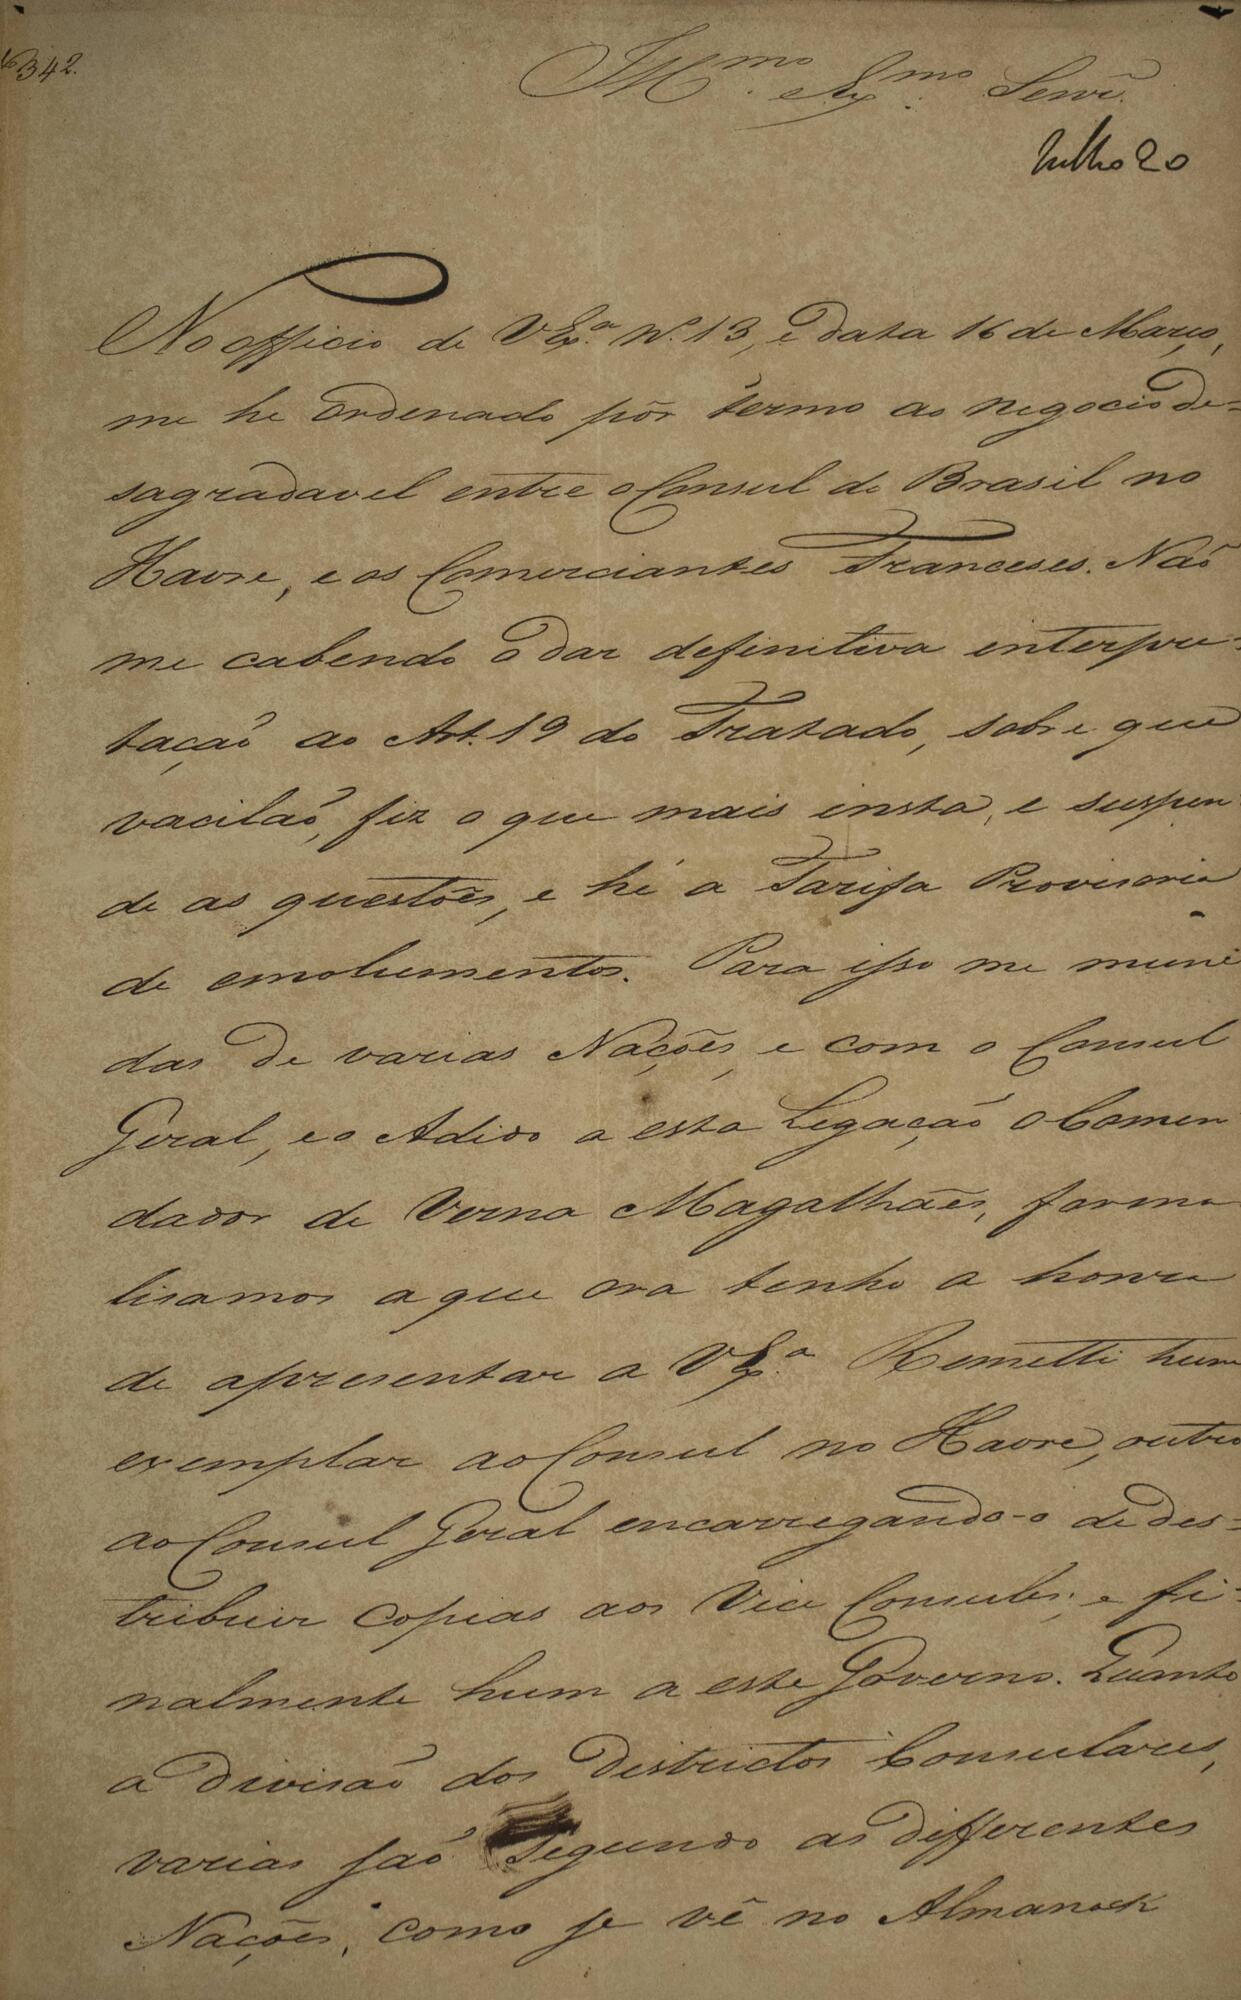 342.
Illmo. e Exmo. Senr.
Julho 20
No officio de VExa. N.º 13, e data 16 de Março,
me he ordenado pôr termo ao negocio de=
sagradavel entre o Consul do Brasil no
Havre, e os Comerciantes Franceses. Naõ
me cabendo o dar definitiva interpre=
taçaõ ao Art. 19 do Tratado, sobre que
vacilaõ, fiz o que mais insta, e suspen
de as questões, e hé a Tarifa Provisoria
de emolumentos. Para isso me muni
das de varias Nações, e com o Consul
Geral, e o Adido a esta Legaçaõ o Comen
dador de Verna Magalhães, forma
lisamos a que ora tenho a honra
de apresentar a VExa. Remetti hum
exemplar ao Consul no Havre, outro
ao Consul Geral encarregando-o de des=
tribuir copias aos Vice Consules; e fi=
nalmente hum a este Governo. Quanto
a divisaõ dos Districtos Consulares,
varias saõ segundo as differentes
Nações, como se vê no Almanack